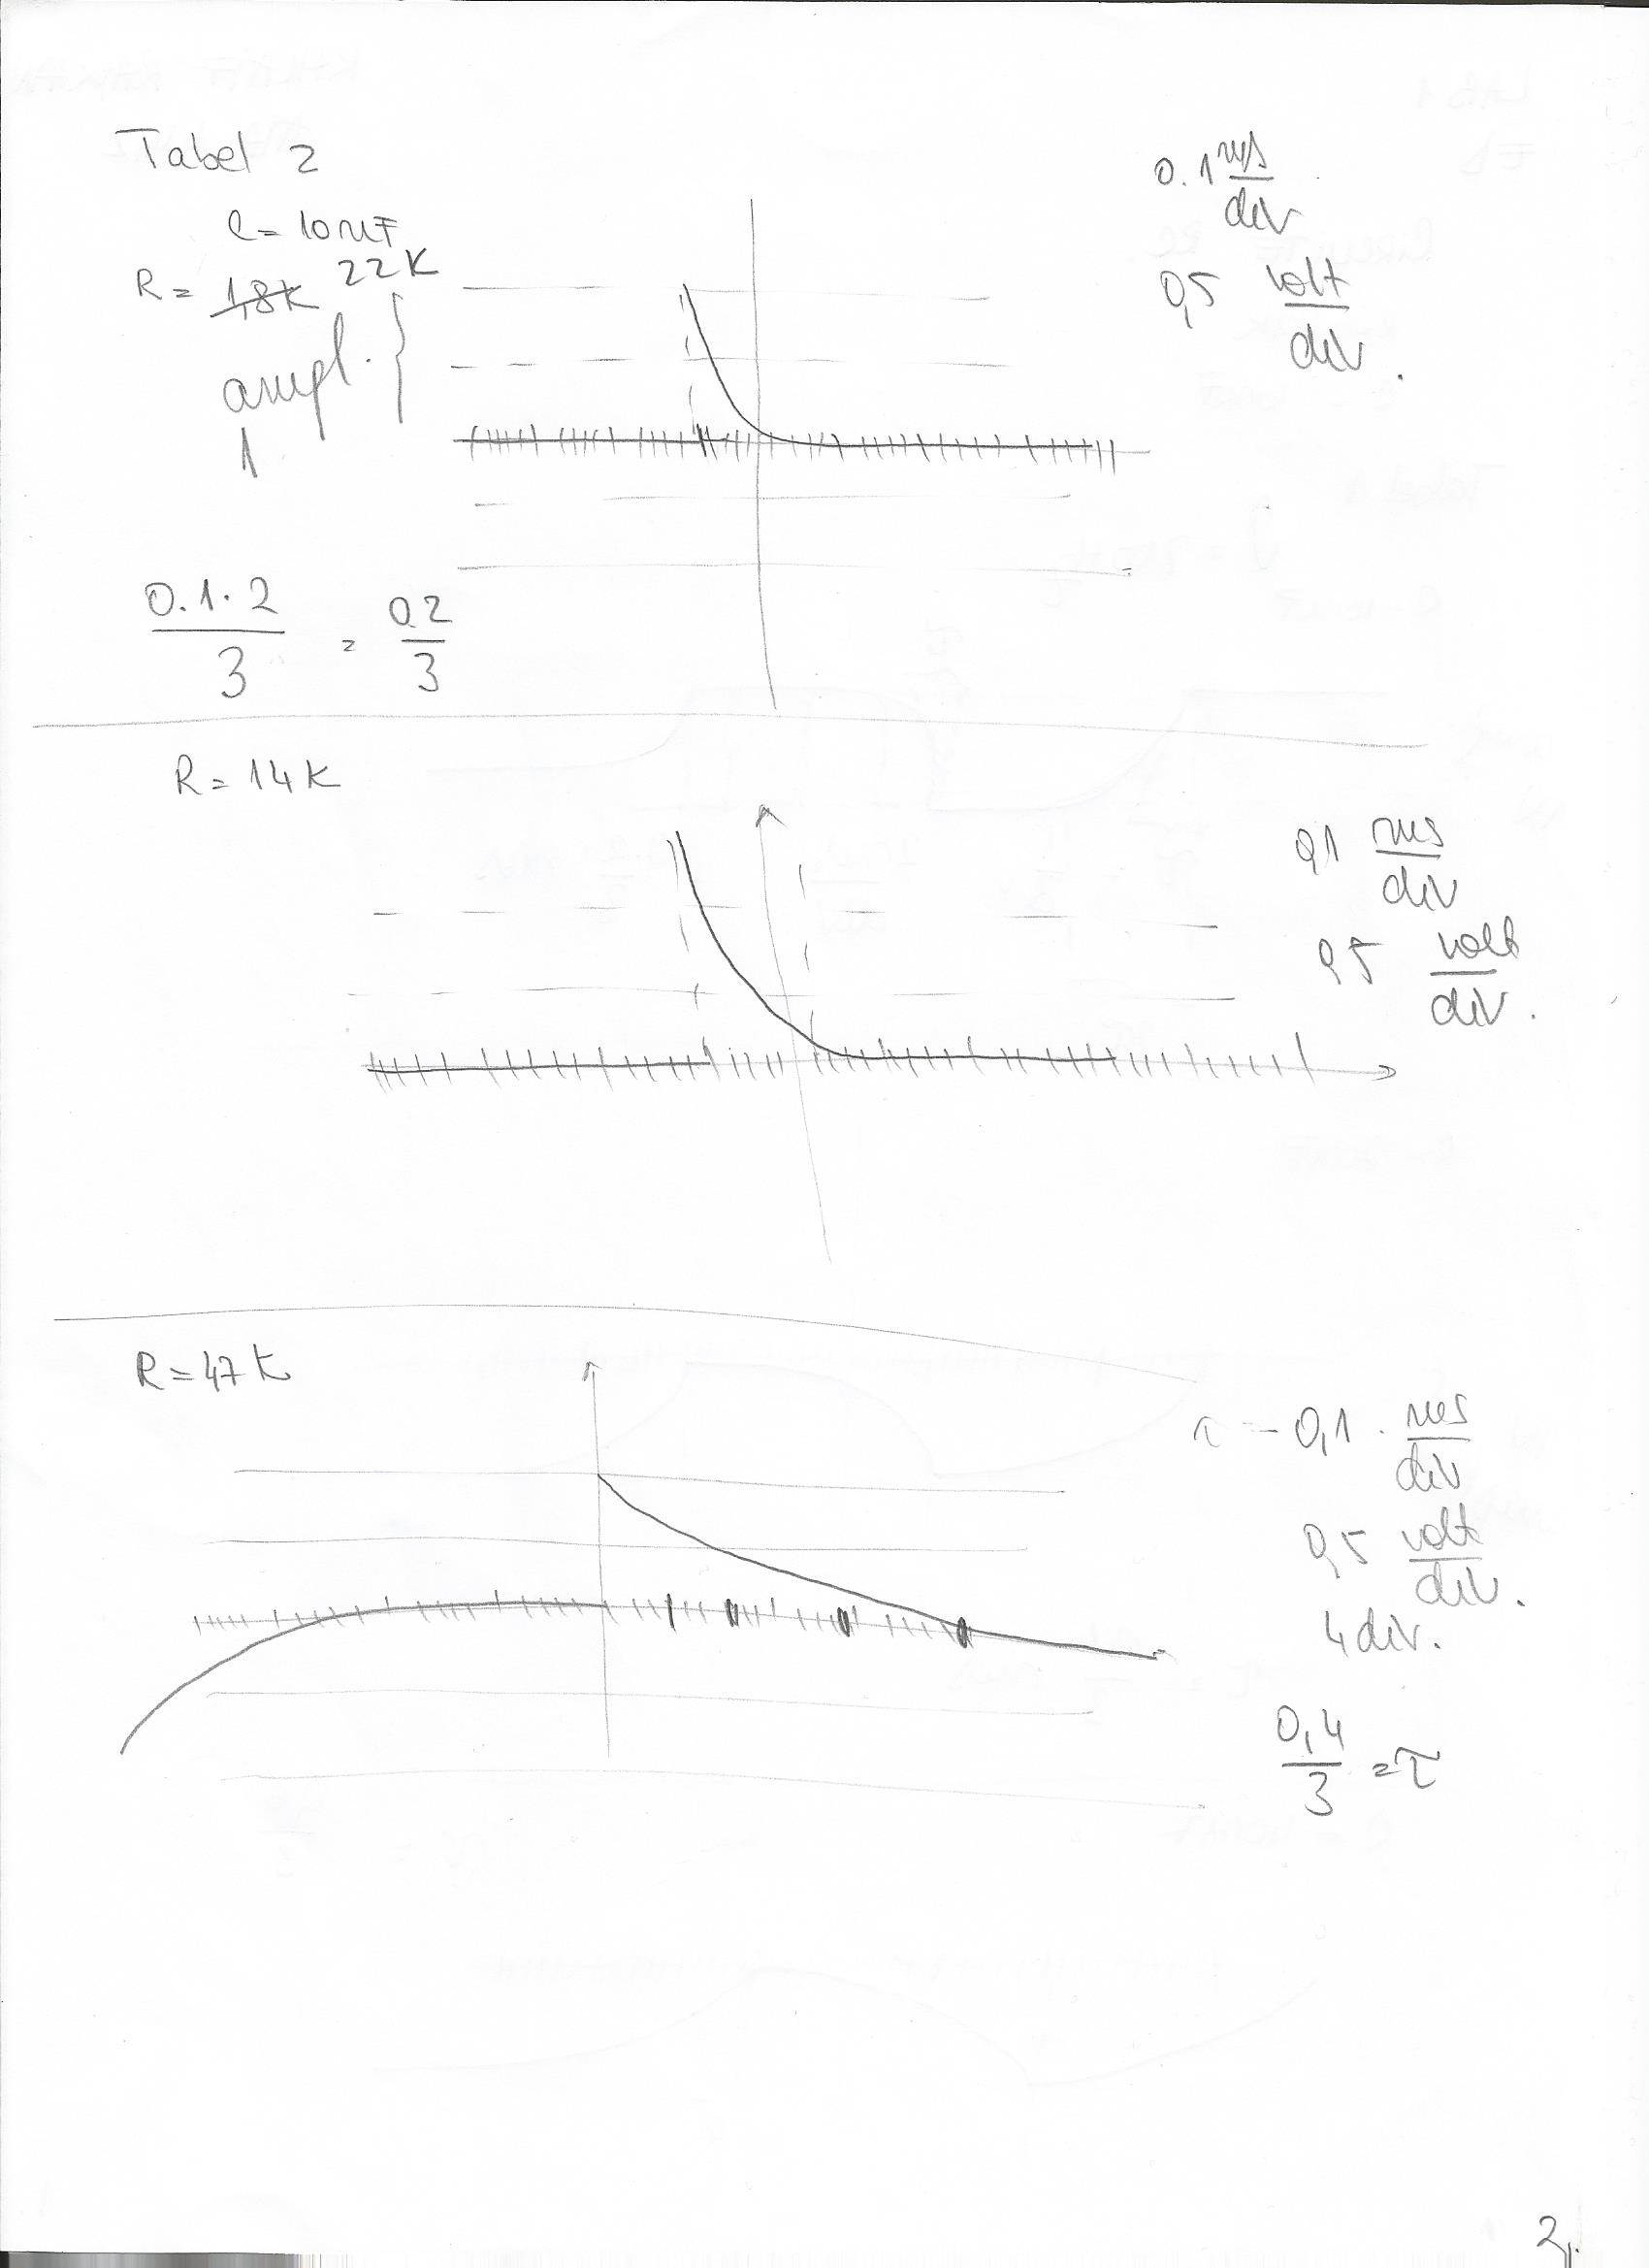 Tabel 2
C = 10 nF
R = 1,8K 22K
ampl.
1
0.1 ms/div
0,5 volt/div.
0.1·2/3 = 0,2/3
R = 14K
0,1 ms/div
0,5 volt/div.
R = 47K
τ = 0,1 · ms/div
0,5 volt/div.
4 div.
0,4/3 = τ
2.